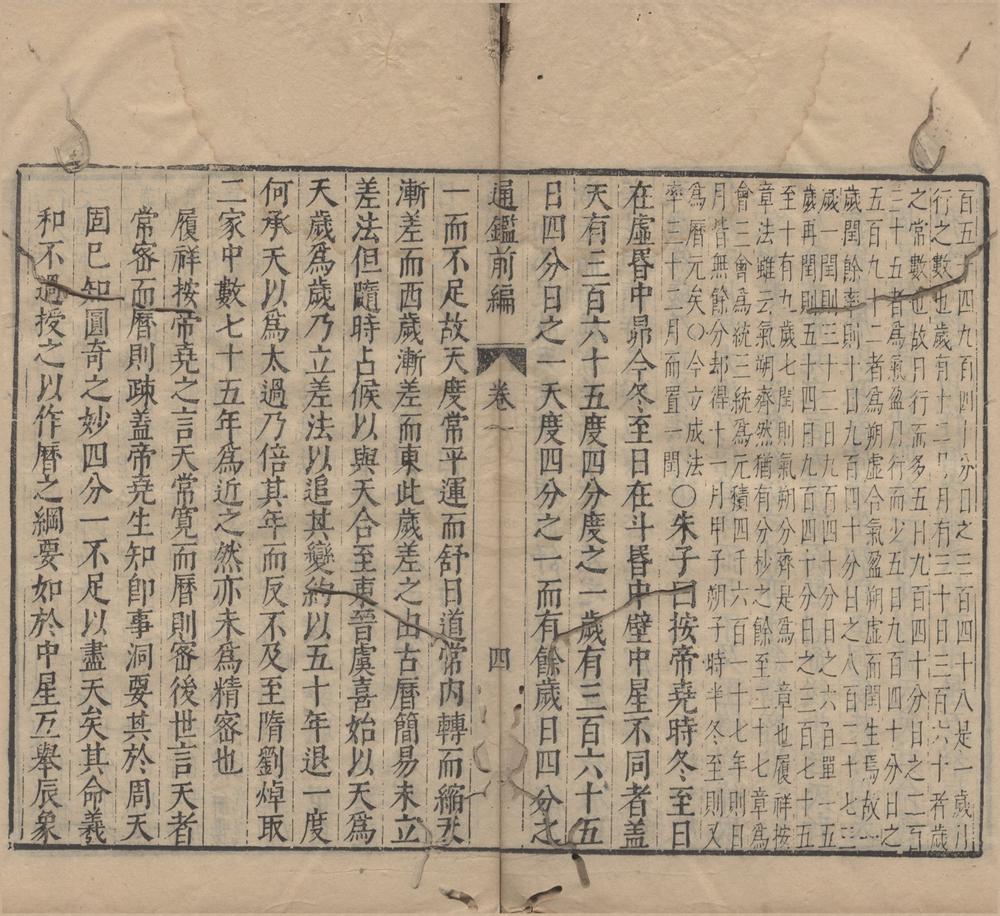 百五十四九百四十分日之三百四十八是一歲月
行之數也歲有十二月月有三十日三百六十者歲
之常數也故日行而多五日九百四十分日之二百
三十五者爲氣盈月行而少五日九百四十分日之
五百九十二者爲朔虛合氣盈朔虛而閏生焉故一
歲閏餘率則十日九百四十分日之八百二十七三
歲一閏則三十二日九百四十分日之六百單一五
歲再閏則五十四日九百四十分日之三百七十五
至十有九歲七閏則氣朔分齊是爲一章也履祥按
章法雖云氣朔齊然猶有分杪之餘至二十七章爲
會三會爲統三統爲元積四千六百一十七年則日
月皆無餘分却得十一月甲子朔子時半冬至則又
爲曆元矣○今立成法
率三十二月而置一閏
○朱子曰按帝堯時冬至日
在虛昏中昴今冬至日在斗昏中壁中星不同者蓋
天有三百六十五度四分度之一歲有三百六十五
日四分日之一天度四分之一而有餘歲日四分之
通鑑前編 卷一 四
一而不足故天度常平運而舒日道常內轉而縮天
漸差而西歲漸差而東此歲差之由古曆簡易未立
差法但隨時占候以與天合至東晉虞喜始以天爲
天歲爲歲乃立差法以追其變約以五十年退一度
何承天以爲太過乃倍其年而反不及至隋劉焯取
二家中數七十五年爲近之然亦未爲精密也
履祥按帝堯之言天常寬而曆則密後世言天者
常密而曆則疎蓋帝堯生知卽事洞要其於周天
固已知圓奇之妙四分一不足以盡天矣其命羲
和不過授之以作曆之綱要如於中星互舉辰象